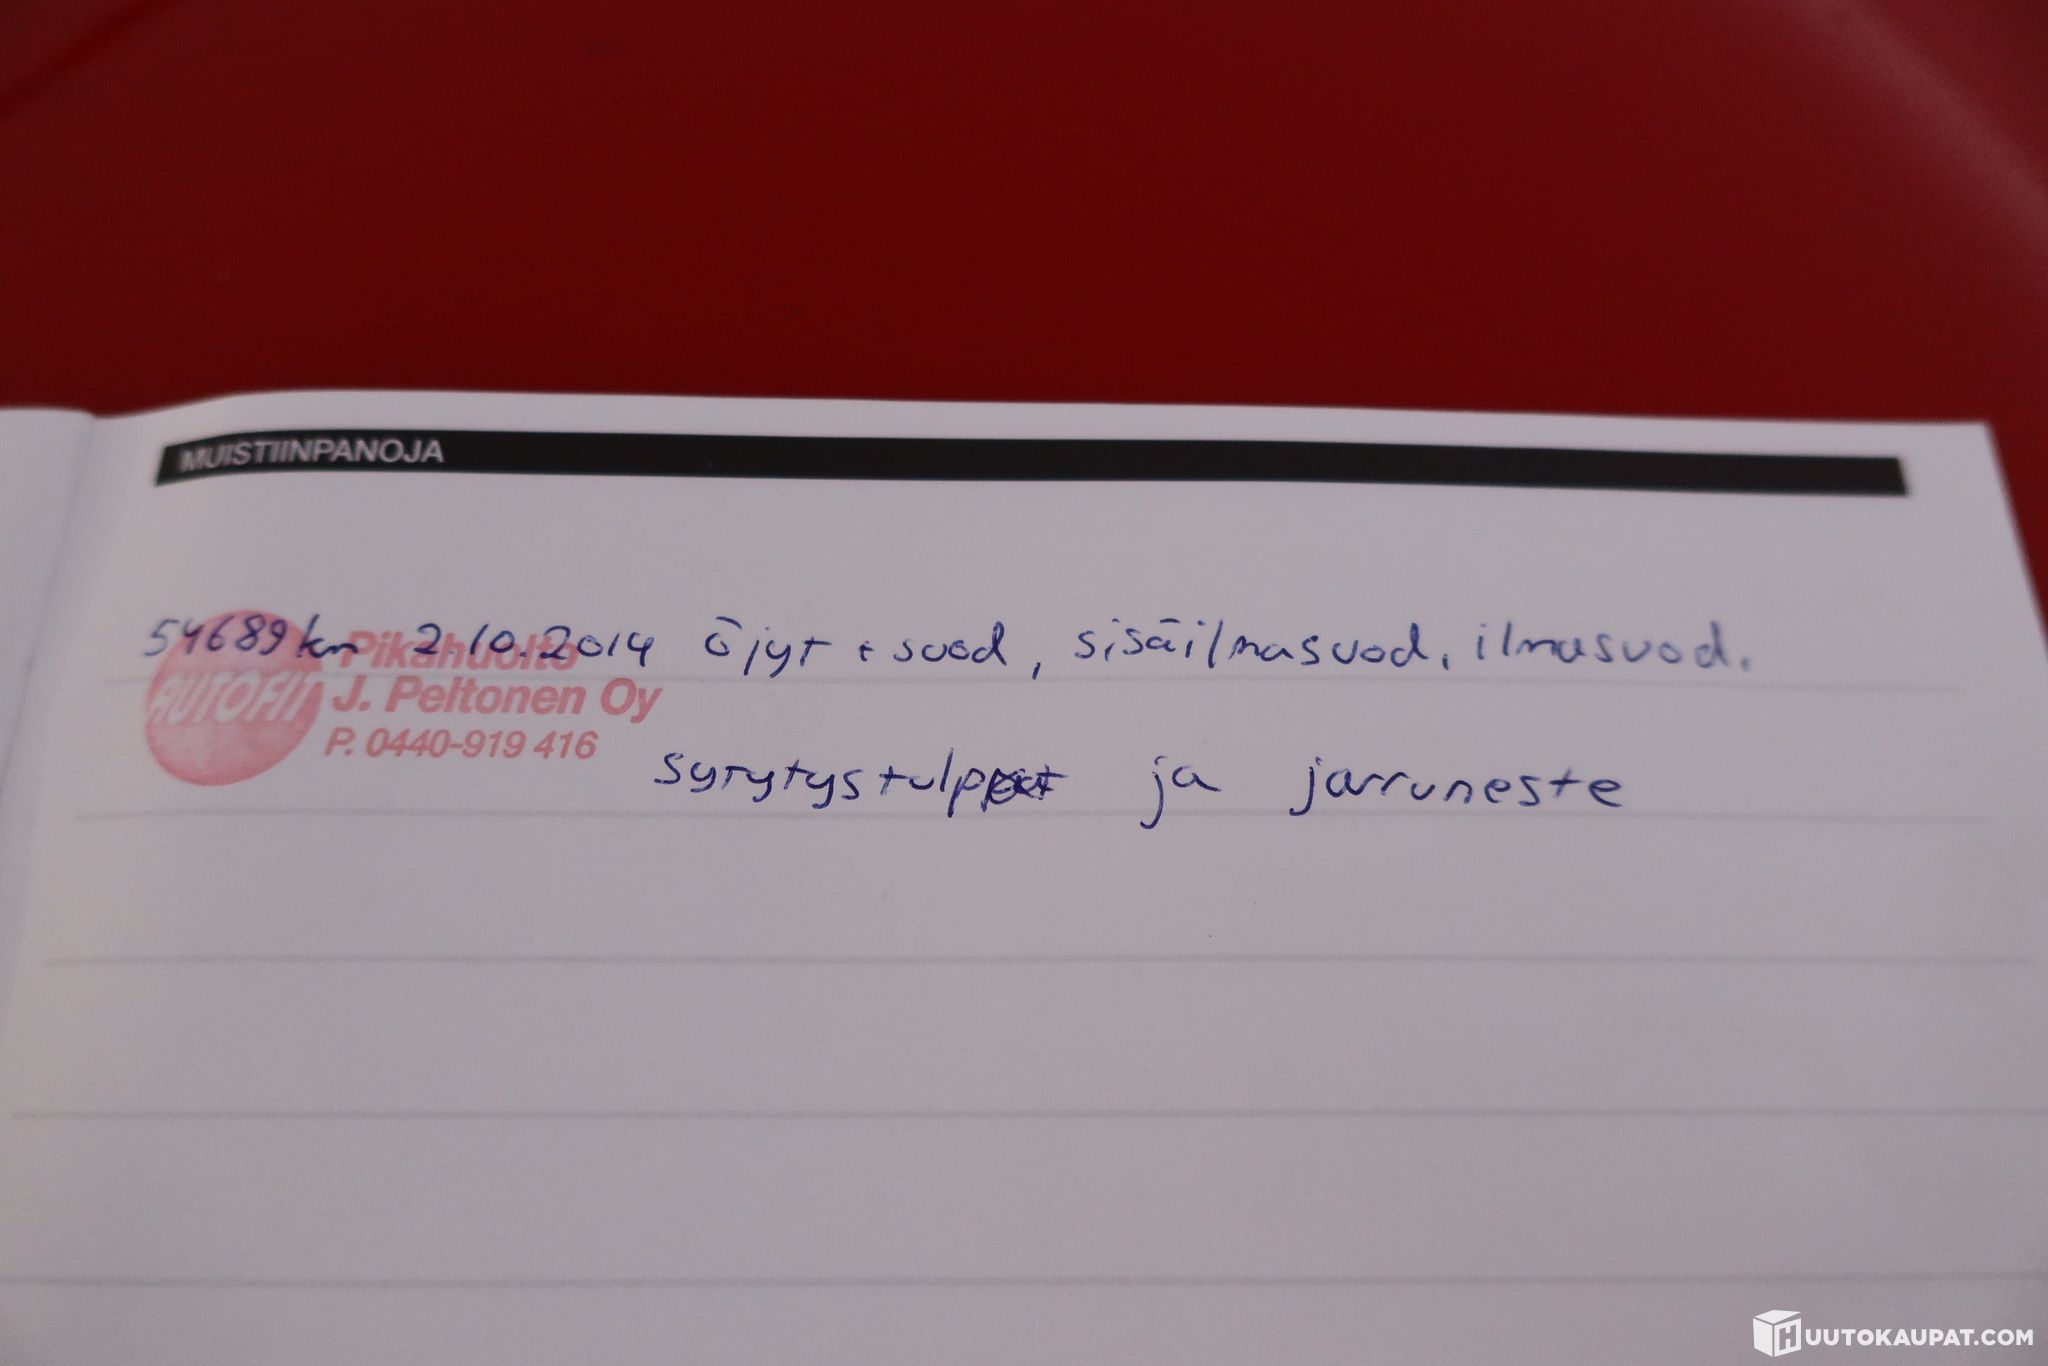 MUISTIINPANOJA
54689 km 2.10.2014 Öjyt + suod, sisäilmasuod, ilmasuod.
Pikahuolto
AUTOFIT J. Peltonen Oy
P. 0440-919 416
sytytystulpat ja jarruneste
HUUTOKAUPAT.COM